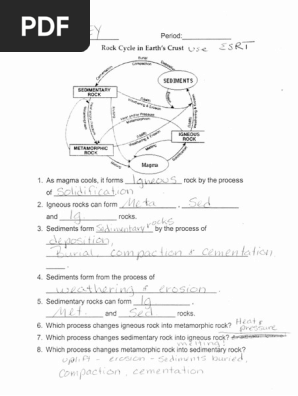 PDF
EY
Period:
Rock Cycle in Earth's Crust
use ESRT
SEDIMENTS
SEDIMENTARY
ROCK
IGNEOUS
ROCK
METAMORPHIC
ROCK
Magma
1. As magma cools, it forms Igneous rock by the process
of Solidification
2. Igneous rocks can form Meta, Sed
and Ig. rocks.
3. Sediments form sedimentary rocks by the process of
deposition,
Burial, compaction & cementation
4. Sediments form from the process of
weathering & erosion.
5. Sedimentary rocks can form Ig,
Met. and Sed rocks.
6. Which process changes igneous rock into metamorphic rock? Heat & pressure
7. Which process changes sedimentary rock into igneous rock?
melting
8. Which process changes metamorphic rock into sedimentary rock?
uplift - erosion - sediments buried,
compaction, cementation